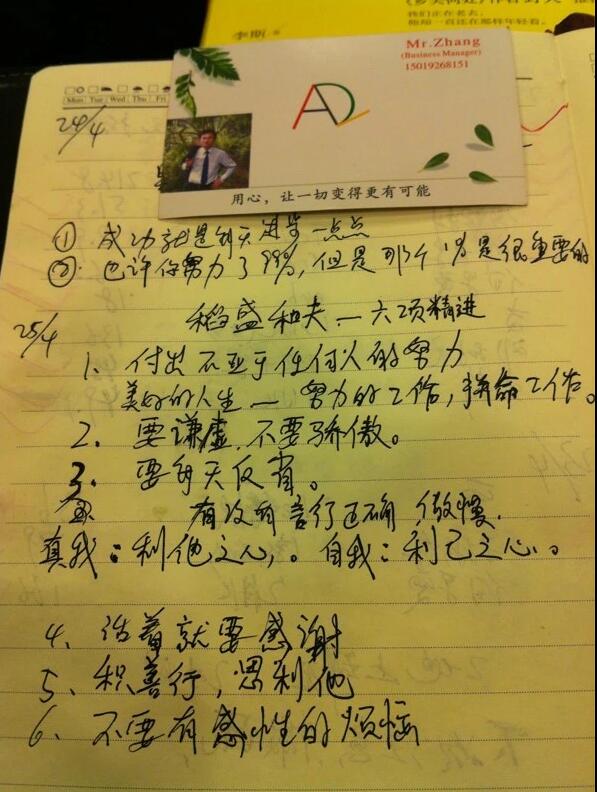 我们正在老去,
李斯
Mr.Zhang
(Business Manager)
15019268151
AD
用心,让一切变得更有可能
Mon Tue Wed Thu Fri
24/4
① 成功就是每天进步一点点
②. 也许你努力了99%,但是那个1%是很重要的
25/4
稻盛和夫—六项精进
1. 付出不亚于任何人的努力
美好的人生— 努力的工作,拼命工作。
2. 要谦虚,不要骄傲。
3. 要每天反省。
有没有言行正确,傲慢.
真我:利他之心,。自我:利己之心。
4、活着就要感谢
5、积善行,思利他
6、不要有感性的烦恼